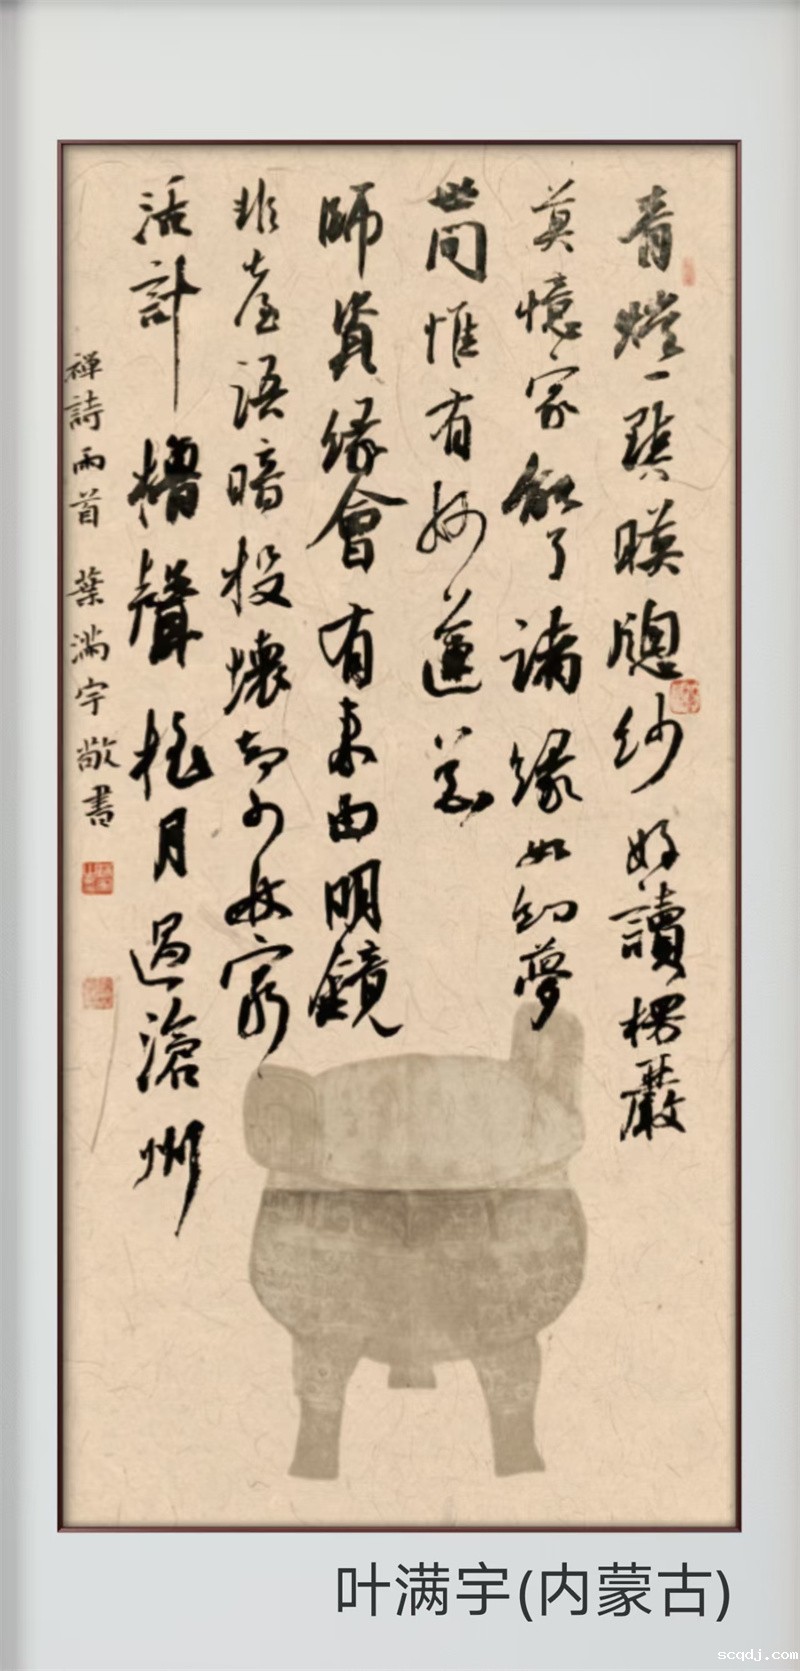 青燈一點映牕紗好讀楞嚴
莫憶家能了諸緣如幻夢
世間惟有妙蓮花
師資緣會有來由明鏡
非臺語暗投壞卻少林窮
活計櫓聲搖月過滄州
禪詩兩首 葉滿宇敬書
叶满宇(内蒙古)
scqdj.com